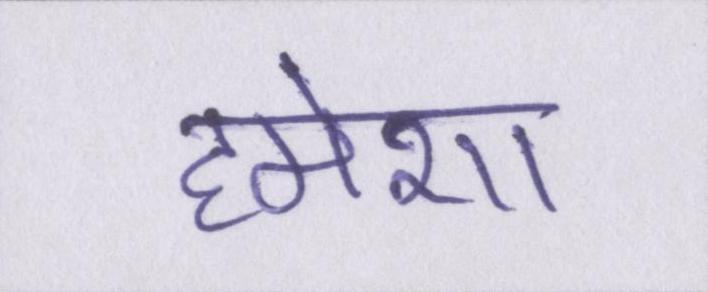 हमेशा